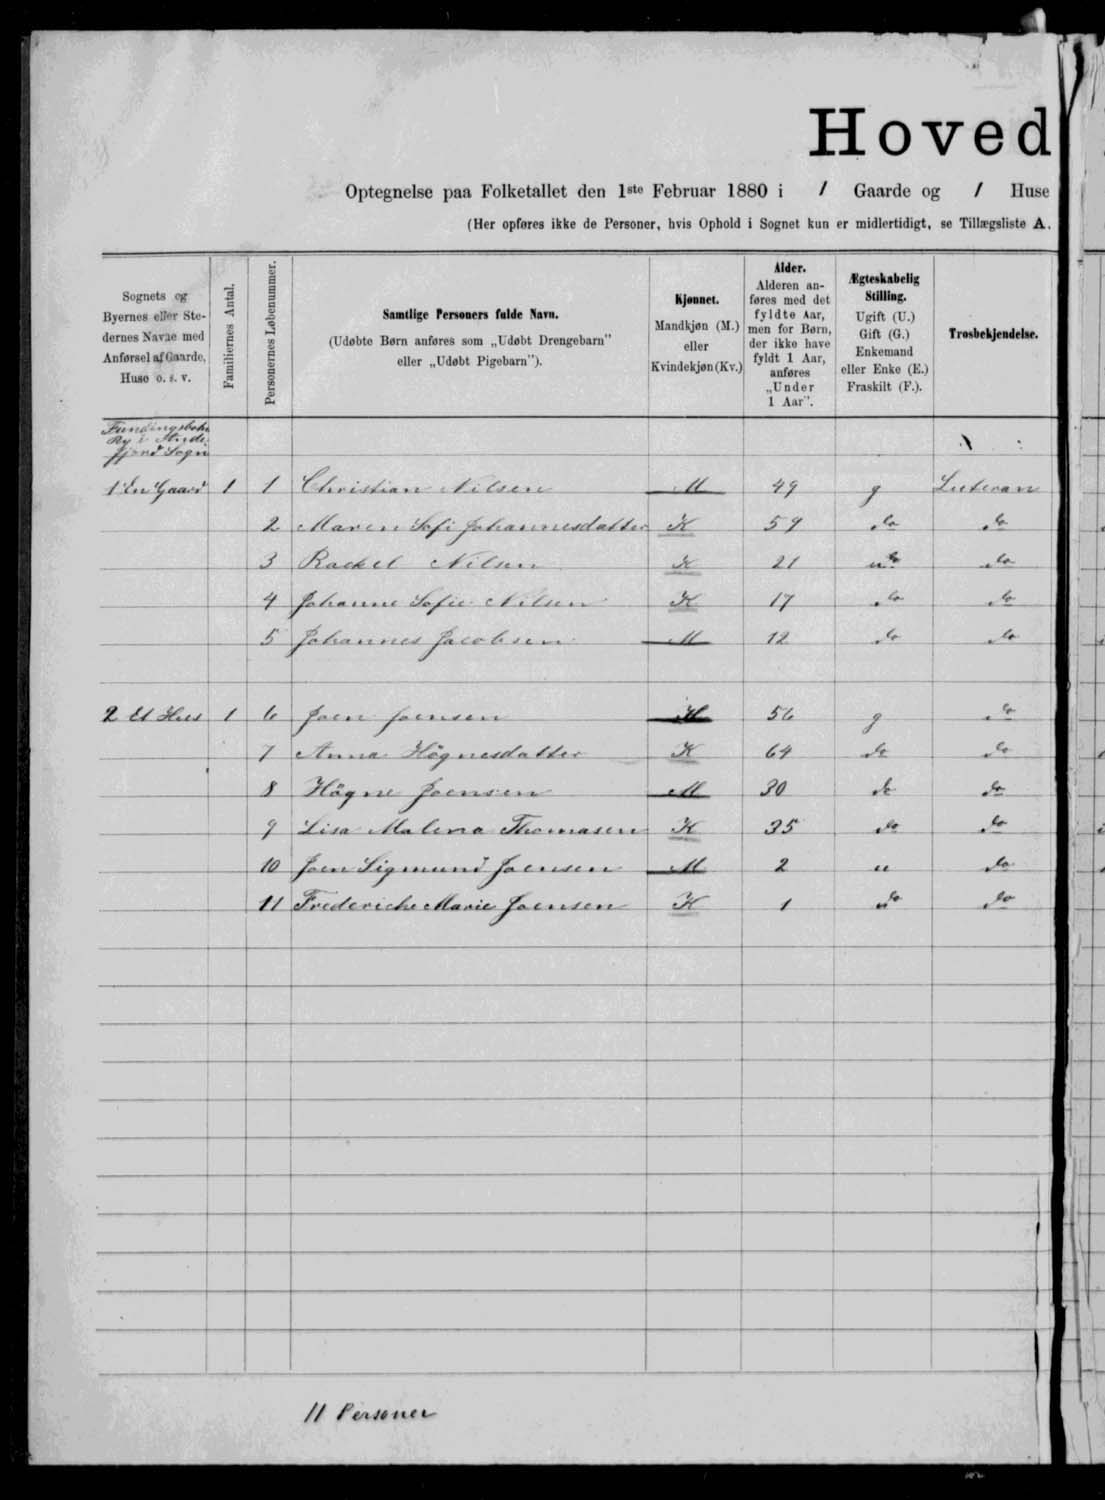 Hoved
Optegnelse paa Folketallet den 1ste Februar 1880 i / Gaarde og / Huse
(Her opføres ikke de Personer, hvis Ophold i Sognet kun er midlertidigt, se Tillægsliste A.
Sognets og Byernes eller Stedernes Navne med Anførsel af Gaarde, Huse o. s. v.
Familiernes Antal.
Personernes Løbenummer.
Samtlige Personers fulde Navn.
(Udøbte Børn anføres som „Udøbt Drengebarn" eller „Udøbt Pigebarn").
Kjønnet.
Mandkjøn (M.) eller Kvindekjøn (Kv.)
Alder.
Alderen anføres med det fyldte Aar, men for Børn, der ikke have fyldt 1 Aar, anføres „Under 1 Aar".
Ægteskabelig Stilling.
Ugift (U.) Gift (G.) Enkemand eller Enke (E.) Fraskilt (F.).
Trosbekjendelse.
By i
fjord Sogn
1 En Gaard 1 1 Christian Nilsen M 49 g Luteran
2 Maren Sofi Johannesdatter K 59 do do
3 Rackel Nilsen K 21 u do
4 Johanne Sofie Nilsen K 17 do do
5 Johannes Jacobsen M 12 do do
2 Et Hus 1 6 Joen Joensen M 56 g do
7 Anna Högnesdatter K 64 do do
8 Högne Joensen M 30 do do
9 Lisa Malena Thomasen K 35 do do
10 Joen Sigmund Joensen M 2 u do
11 Frederiche Marie Joensen K 1 do do
11 Personer